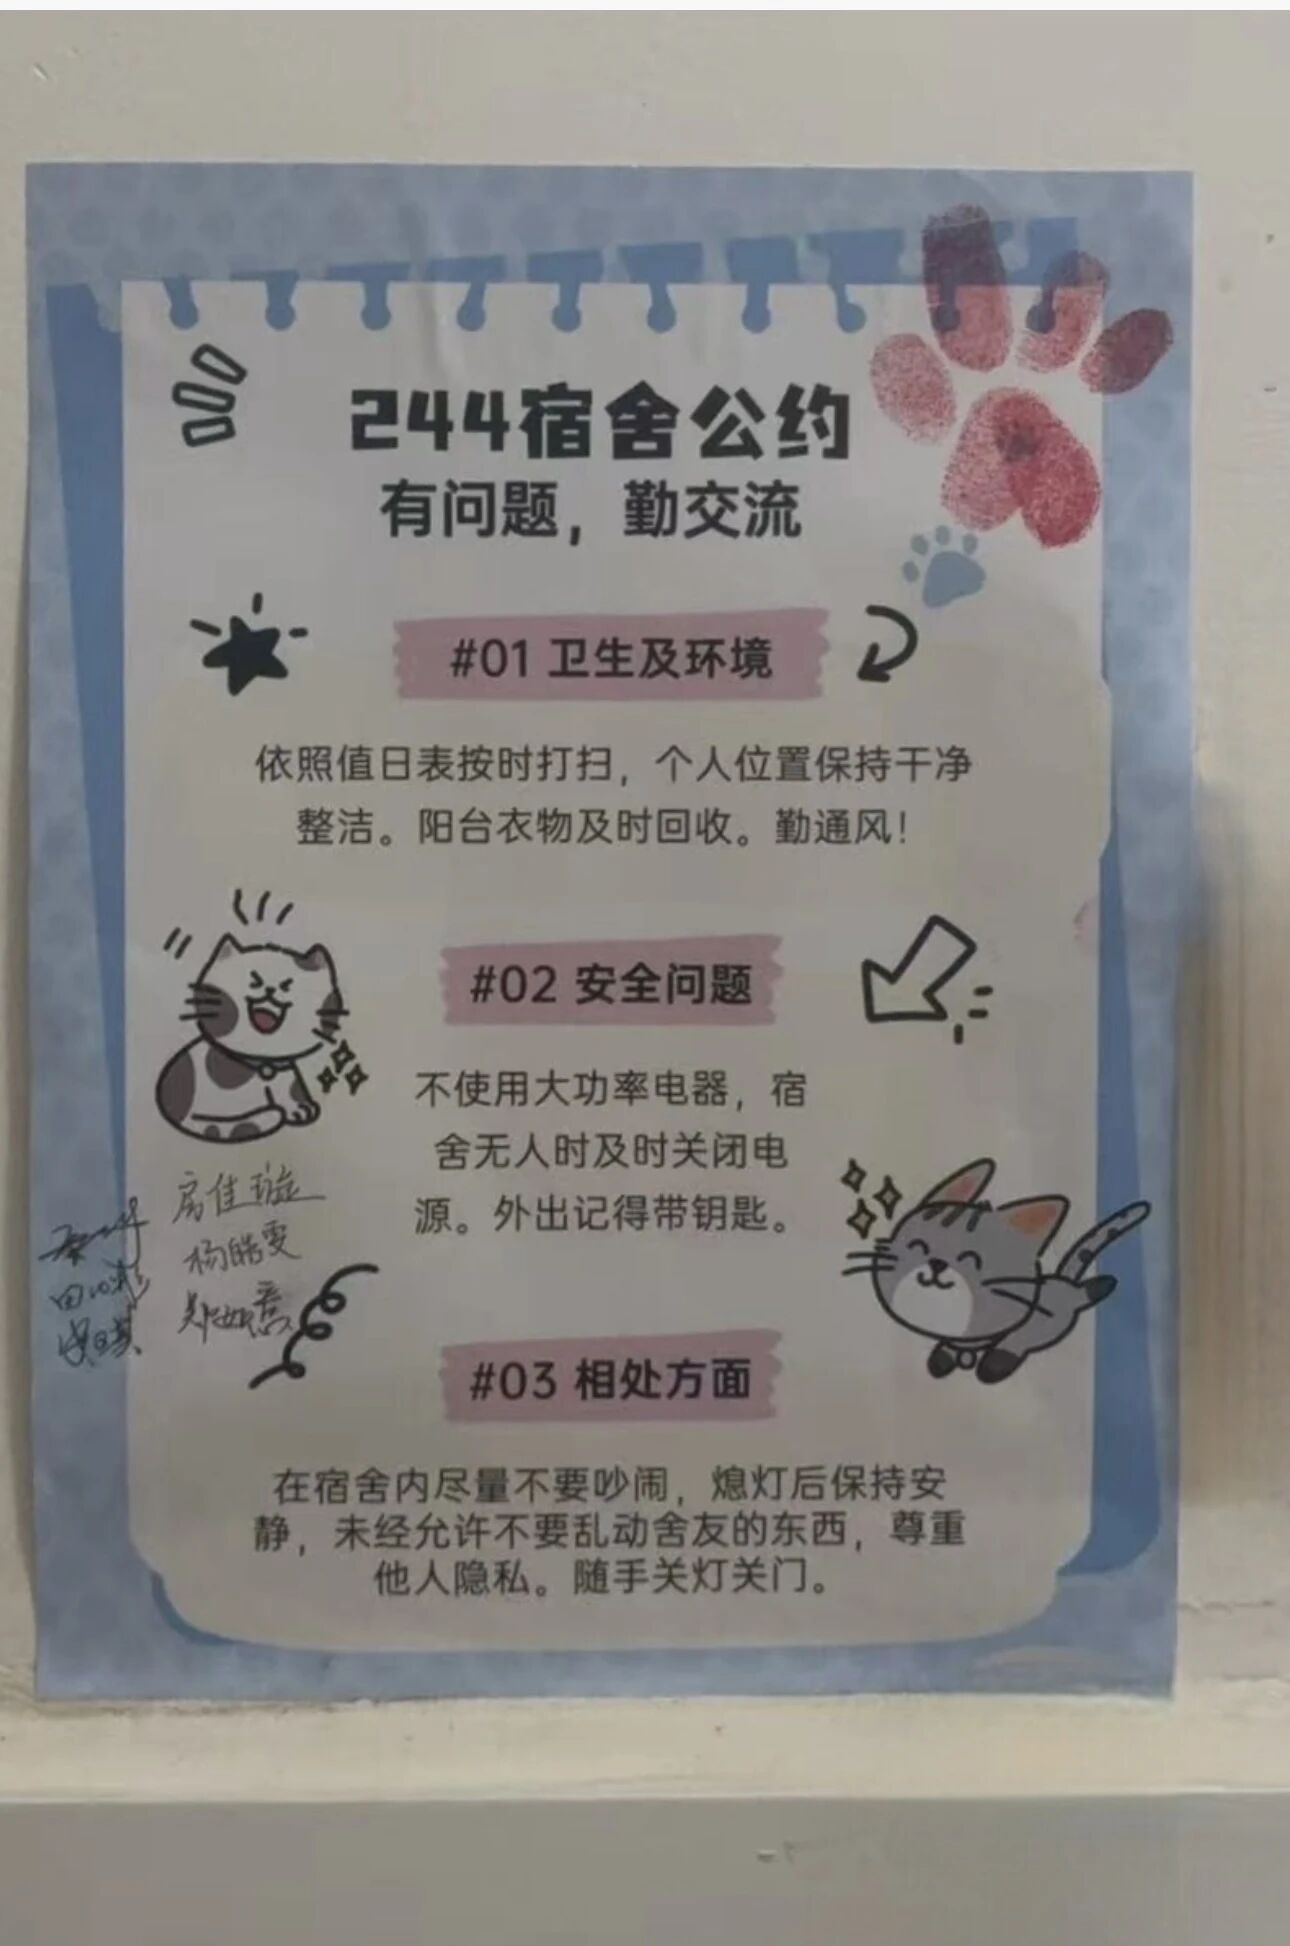 244宿舍公约
有问题，勤交流
#01 卫生及环境
依照值日表按时打扫，个人位置保持干净
整洁。阳台衣物及时回收。勤通风！
#02 安全问题
不使用大功率电器，宿
舍无人时及时关闭电
源。外出记得带钥匙。
房佳璇
杨皓雯
郑如意
#03 相处方面
在宿舍内尽量不要吵闹，熄灯后保持安
静，未经允许不要乱动舍友的东西，尊重
他人隐私。随手关灯关门。